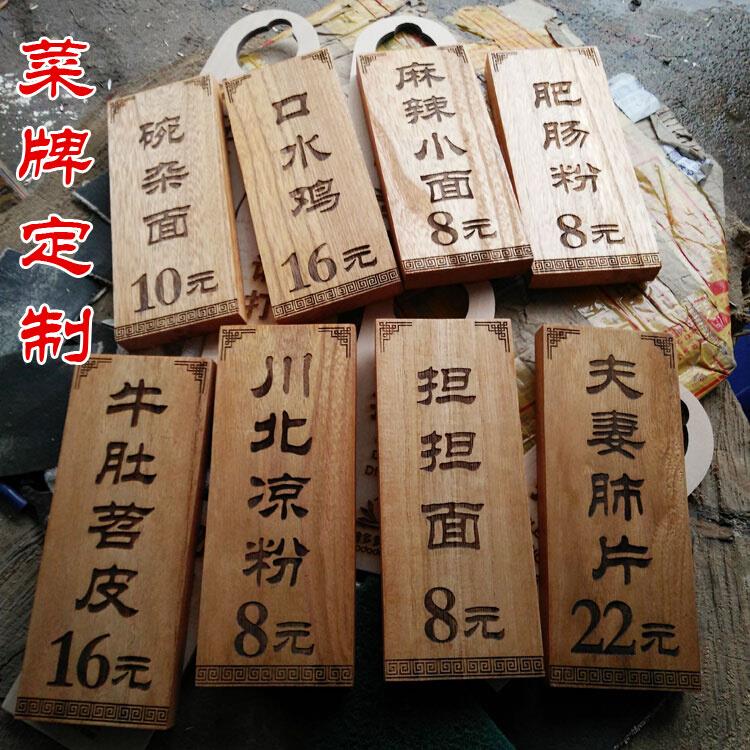 菜牌定制
碗杂面
10元
口水鸡
16元
麻辣小面
8元
肥肠粉
8元
牛肚苕皮
16元
川北凉粉
8元
担担面
8元
夫妻肺片
22元